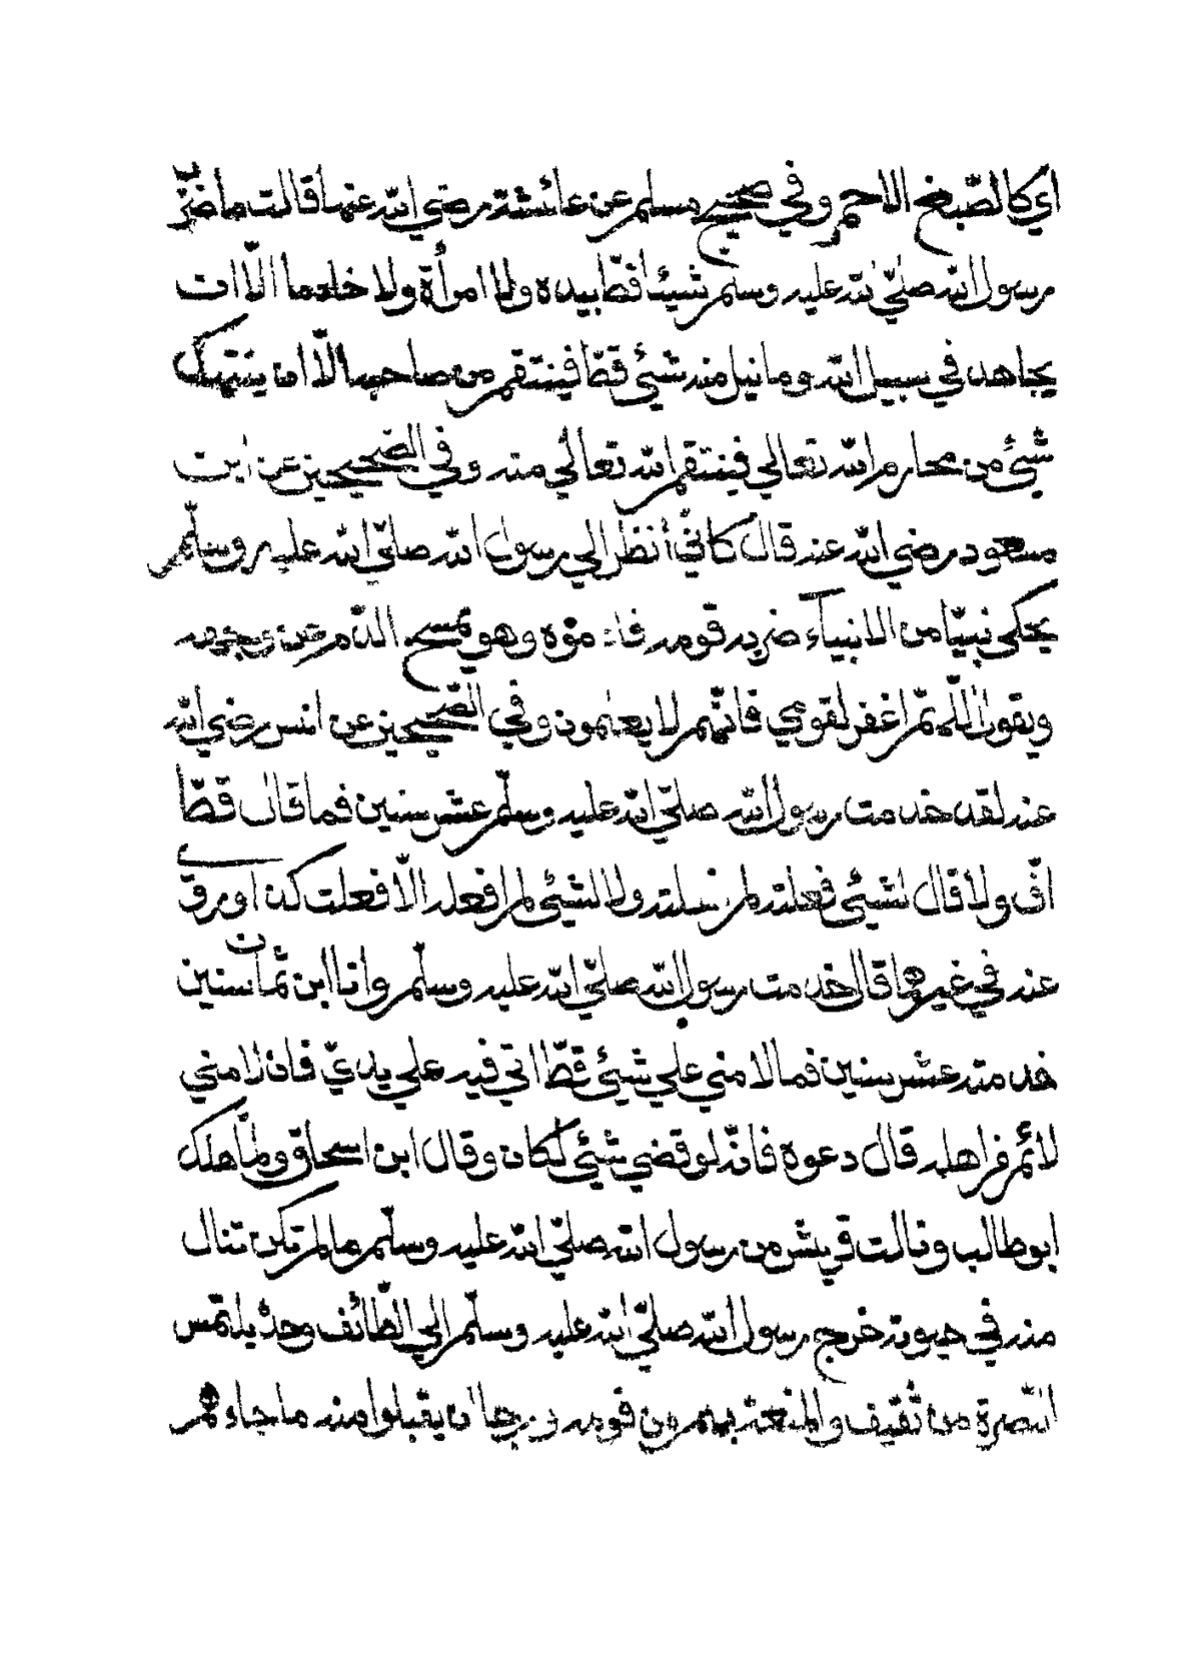 اي كالصّبغ الاحمر وفي صحيح مسلم عن عائشة رضي الله عنها قالت ما ضرب
رسول الله صلّي الله عليه وسلّم شيئا قطّ بيده ولا امرأة ولا خادما الّا ان
يجاهد في سبيل الله وما نيل منه شئي قطّ فينتقم من صاحبه الّا ان ينتهك
شئي من محارم الله تعالي فينتقم الله تعالي منه وفي الصّحيحين عن ابن
مسعود رضي الله عنه قال كانّي أنظر الي رسول الله صلّي الله عليه وسلّم
يحكي نبيّا من الانبيآء ضربه قومه فادموه وهو يمسح الدّم عن وجهه
ويقول اللّهمّ اغفر لقومي فانّهم لا يعلمون وفي الصّحيحين عن انس رضي الله
عنه لقد خدمت رسول الله صلّي الله عليه وسلّم عشر سنين فما قال قطّ
افّ ولا قال لشيئي فعلته لم فعلته ولا لشيئي لم افعله الّا فعلت كذا وروي
عنه في غيرهما قال خدمت رسول الله صلّي الله عليه وسلّم وانا ابن ثمان سنين
خدمته عشر سنين فما لامني علي شيئي قطّ اتي فيه علي يديّ فان لامني
لائم من اهله قال دعوه فانّه لو قضي شيئي لكان وقال ابن اسحاق ولمّا هلك
ابو طالب ونالت قريش من رسول الله صلّي الله عليه وسلّم ما لم تكن تنال
منه في حيوته خرج رسول الله صلّي الله عليه وسلّم الي الطّائف وحده يلتمس
النّصرة من ثقيف والمنعة بهم من قومه ورجا ان يقبلوا منه ما جاءهم